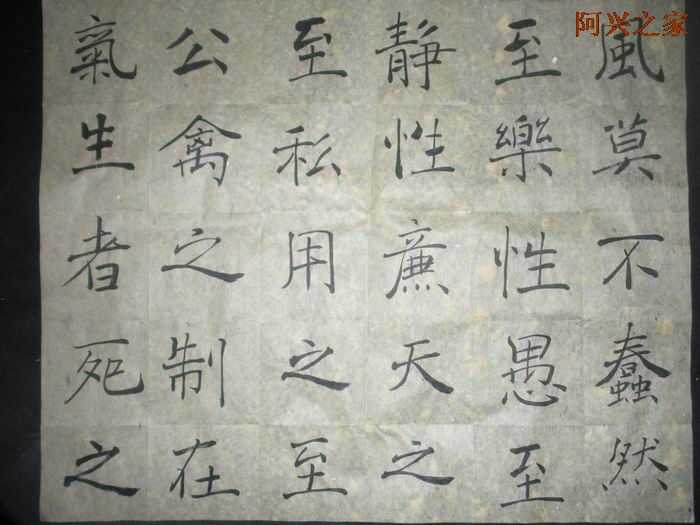 阿兴之家
風莫不蠢然
至樂性愚至
靜性廉天之
至私用之至
公禽之制在
氣生者死之